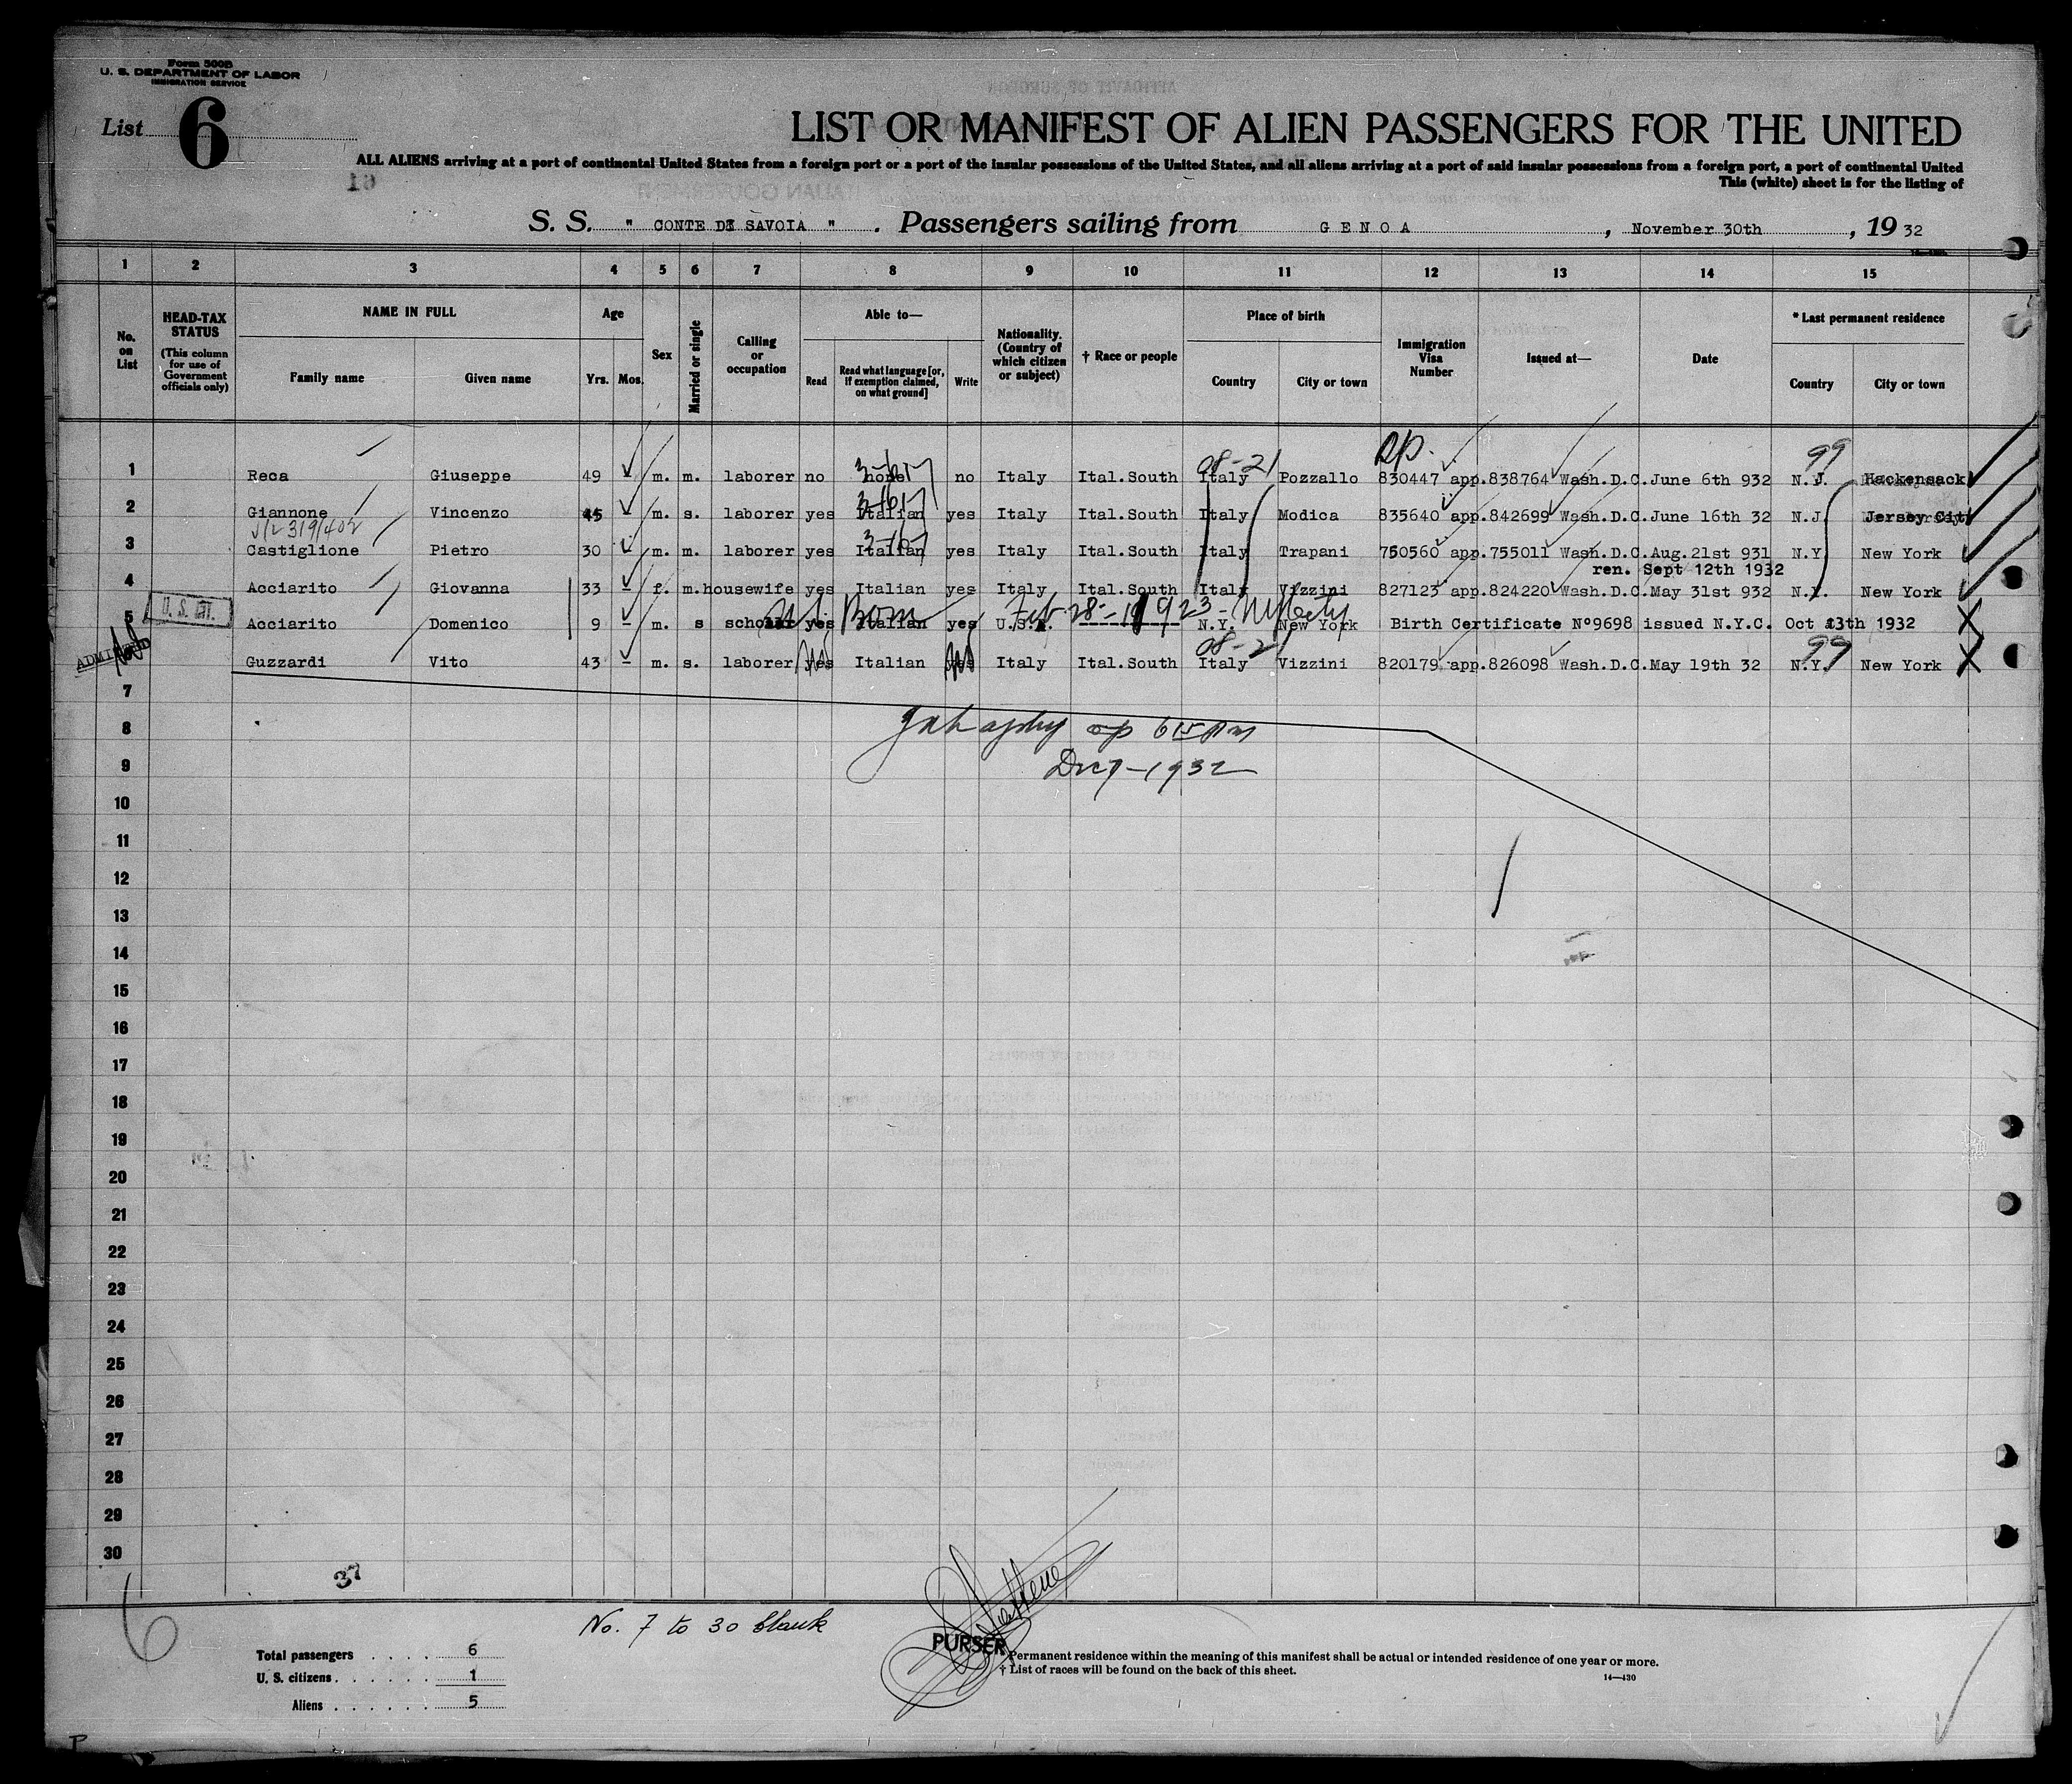 Form 500B
U. S. DEPARTMENT OF LABOR
IMMIGRATION SERVICE
List 6
LIST OR MANIFEST OF ALIEN PASSENGERS FOR THE UNITED
ALL ALIENS arriving at a port of continental United States from a foreign port or a port of the insular possessions of the United States, and all aliens arriving at a port of said insular possessions from a foreign port, a port of continental United
This (white) sheet is for the listing of
S. S. " CONTE DI SAVOIA " . Passengers sailing from GENOA , November 30th , 19 32
1 2 3 4 5 6 7 8 9 10 11 12 13 14 15
No. on List
HEAD-TAX STATUS (This column for use of Government officials only)
NAME IN FULL
Family name Given name
Age
Yrs. Mos.
Sex
Married or single
Calling or occupation
Able to—
Read
Read what language [or, if exemption claimed, on what ground]
Write
Nationality. (Country of which citizen or subject)
† Race or people
Place of birth
Country City or town
Immigration Visa Number
Issued at—
Date
* Last permanent residence
Country City or town
1 Reca Giuseppe 49 m. m. laborer no none no Italy Ital.South Italy Pozzallo 830447 app.838764 Wash.D.C. June 6th 932 N.J. Hackensack
2 Giannone Vincenzo 45 m. s. laborer yes Italian yes Italy Ital.South Italy Modica 835640 app.842699 Wash.D.C. June 16th 32 N.J. Jersey City
3 Castiglione Pietro 30 m. m. laborer yes Italian yes Italy Ital.South Italy Trapani 750560 app.755011 Wash.D.C. Aug.21st 931 N.Y. New York
ren. Sept 12th 1932
4 Acciarito Giovanna 33 f. m. housewife yes Italian yes Italy Ital.South Italy Vizzini 827123 app.824220 Wash.D.C. May 31st 932 N.Y. New York
U. S. CIT.
Born Feb 28-1923-
5 Acciarito Domenico 9 - m. s scholar yes Italian yes U.S.A. N.Y. New York Birth Certificate Nº9698 issued N.Y.C. Oct 13th 1932
ADMITTED
08-21 99
6 Guzzardi Vito 43 - m. s. laborer yes Italian yes Italy Ital.South Italy Vizzini 820179 app.826098 Wash.D.C. May 19th 32 N.Y. New York
7
8
9
Dec 7-1932
10
11
12
13
14
15
16
17
18
19
20
21
22
23
24
25
26
27
28
29
30
37
6
No. 7 to 30 blank
Total passengers . . . . 6
U. S. citizens . . . . . . 1
Aliens . . . . . . 5
PURSER
* Permanent residence within the meaning of this manifest shall be actual or intended residence of one year or more.
† List of races will be found on the back of this sheet.
14—430